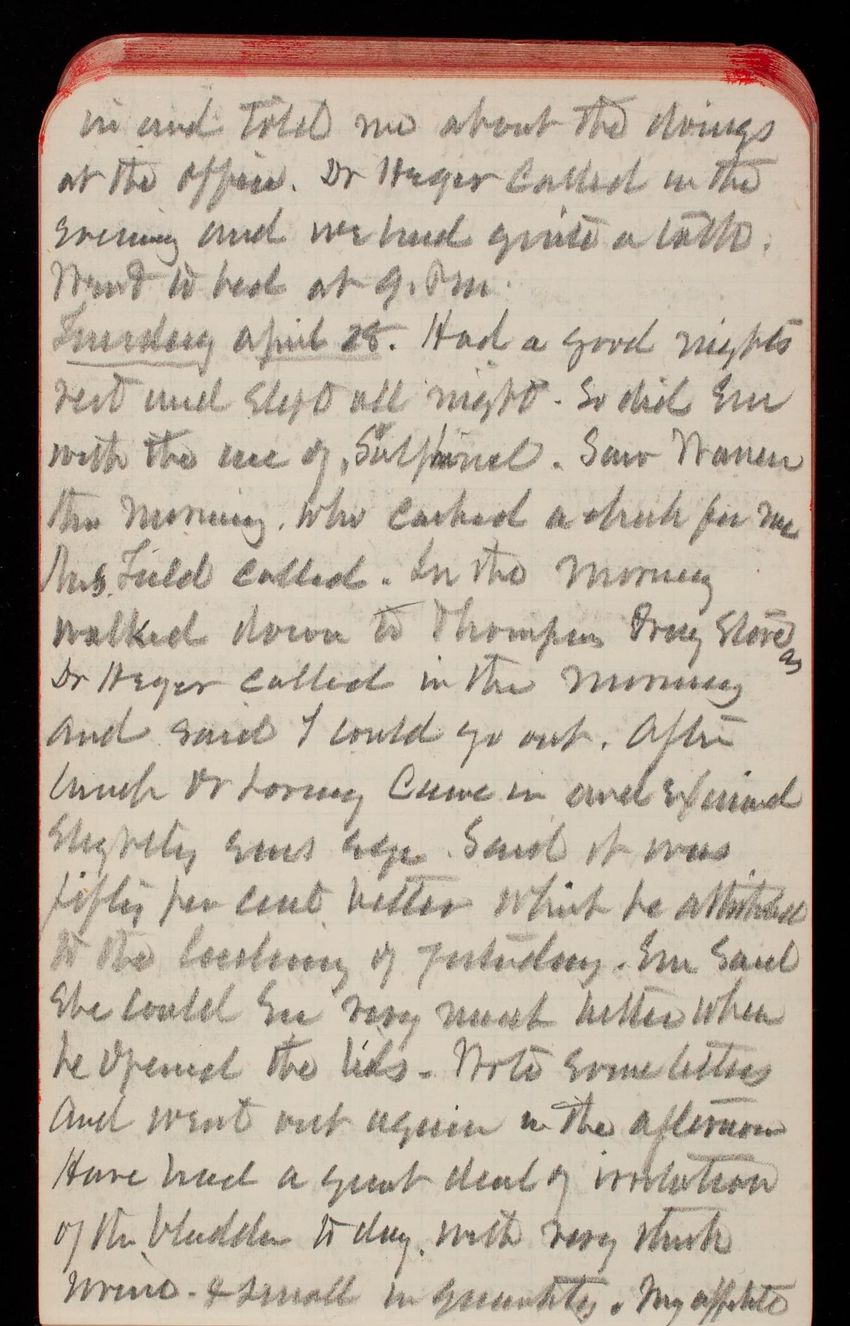 in and told me about the doings
at the office. Dr Heger called in the
evening and we had quite a talk.
Went to bed at 9. P.m.
Tuesday april 28. Had a good nights
rest and slept all night. So did Em
with the use of Sulphinol. Saw Warren
this morning. Who cashed a check for me
Mrs Field called. In the morning
walked down to Thompsons Drug Store as
Dr Heger called in the morning
and said I could go out. After
lunch Dr Loring came in and
slightly ems eye. Said it was
fifty per cent better which he attributed
to the of yesterday. Em said
she could see very much better when
he opened the lids. Wrote some letters
and went out again in the afternoon
Have had a great deal of irritation
of the bladder to day, with very
urine - & small in quantity. My appetite